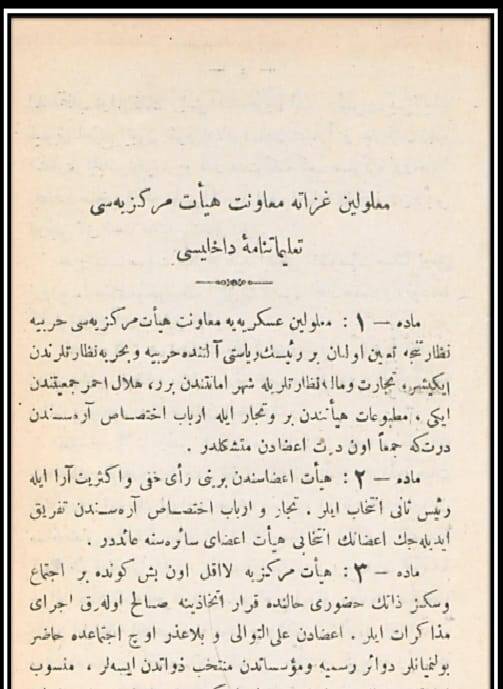 معلولین غزاته معاونت هیأت مركزیه‌سی
تعلیماتنامهٔ داخلیسی
ماده — ١ : معلولین عسكریه‌یه معاونت هیأت مركزیه‌سی حربیه
نظارتنجه تعیین اولنان بر رئیسك ریاستی آلتنده حربیه و بحریه نظارتلرندن
ایكیشر، تجارت ومالیه نظارتلریله شهر امانتندن برر، هلال احمر جمعیتندن
ایكی ، مطبوعات هیأتندن بر وتجار ایله ارباب اختصاص آره‌سندن
درت كه جمعاً اون درت اعضادن متشكلدر .
ماده — ٢ : هیأت اعضاسندن برینی رأی خفی و اكثریت آرا ایله
رئیس ثانی انتخاب ایلر . تجار و ارباب اختصاص آره‌سندن تفریق
ایدیله‌جك اعضانك انتخابی هیأت اعضای سائره‌سنه عائددر .
ماده — ٣ : هیأت مركزیه لااقل اون بش كونده بر اجتماع
وسكز ذاتك حضوری حالنده قرار اتخاذینه صالح اوله‌رق اجرای
مذاكرات ایلر . اعضادن علی‌التوالی و بلاعذر اوچ اجتماعده حاضر
بولنمیانلر دوائر رسمیه ومؤسساتدن منتخب ذواتدن ایسه‌لر ، منسوب